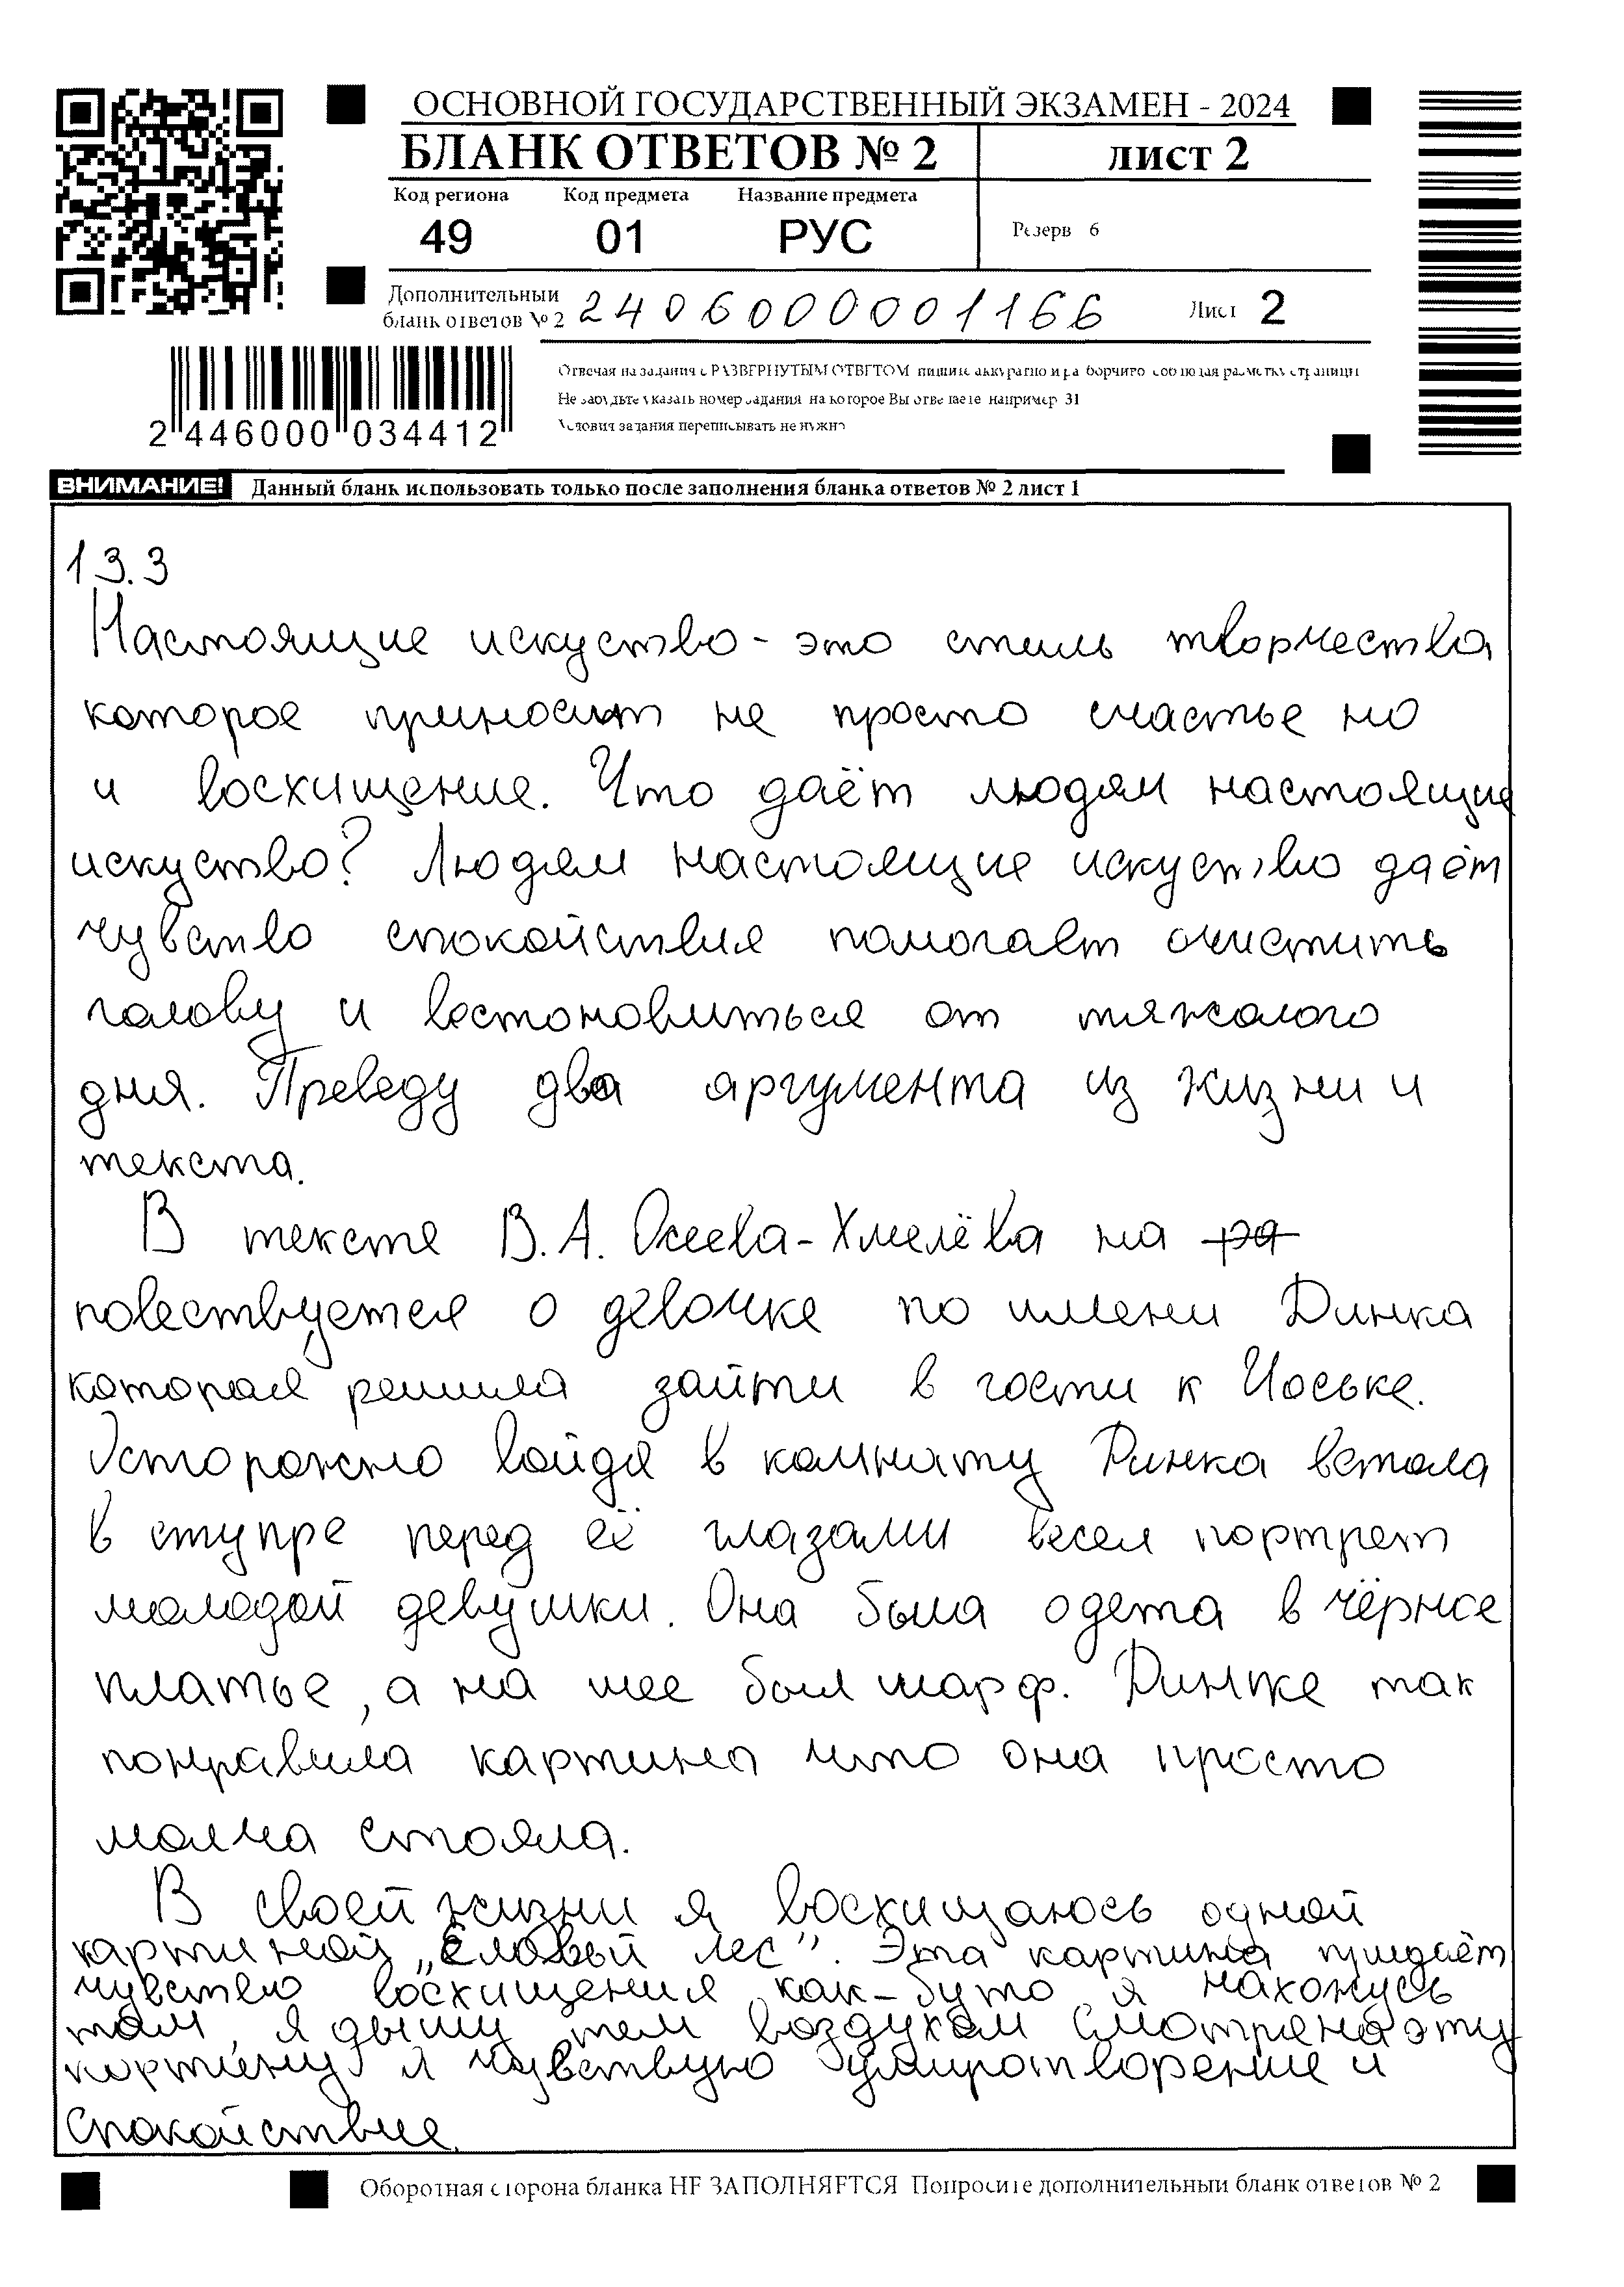 ОСНОВНОЙ ГОСУДАРСТВЕННЫЙ ЭКЗАМЕН - 2024
БЛАНК ОТВЕТОВ № 2
лист 2
Код региона Код предмета Название предмета
49 01 РУС
Резерв 6
Дополнительный
бланк ответов № 2
2406000001166
Лист 2
2 446000 034412
Отвечая на задания с РАЗВЕРНУТЫМ ОТВЕТОМ пишите аккуратно и разборчиво соблюдая разметку страницы
Не забудьте указать номер задания на которое Вы отвечаете например 31
Условия задания переписывать не нужно
ВНИМАНИЕ! Данный бланк использовать только после заполнения бланка ответов № 2 лист 1
13.3
Настоящие искуство - это стиль творчества,
которое приносит не просто счастье но
и восхищение. Что даёт людям настоящие
искуство? Людям настоящие искуство даёт
чувство спокойствия помогает очистить
голову и востоновиться от тяжолого
дня. Преведу два аргумента из жизни и
текста.
В тексте В.А. Осеева-Хмелёва на ра
повествуется о девочке по имени Динка
которая решила зайти в гости к Иоське.
Осторожно войдя в комнату Динка встала
в ступре перед её глазами весел портрет
молодой девушки. Она была одета в чёрное
платье, а на шее был шарф. Динке так
понравила картина что она просто
молча стояла.
В своей жизни я восхищаюсь одной
картиной „Еловый лес". Эта картина придаёт
чувство восхищения как-буто я нахожусь
там, я дышу тем воздухам смотря на эту
картину я чувствую умиротворение и
спокойствие
Оборотная сторона бланка НЕ ЗАПОЛНЯЕТСЯ Попросите дополнительный бланк ответов № 2